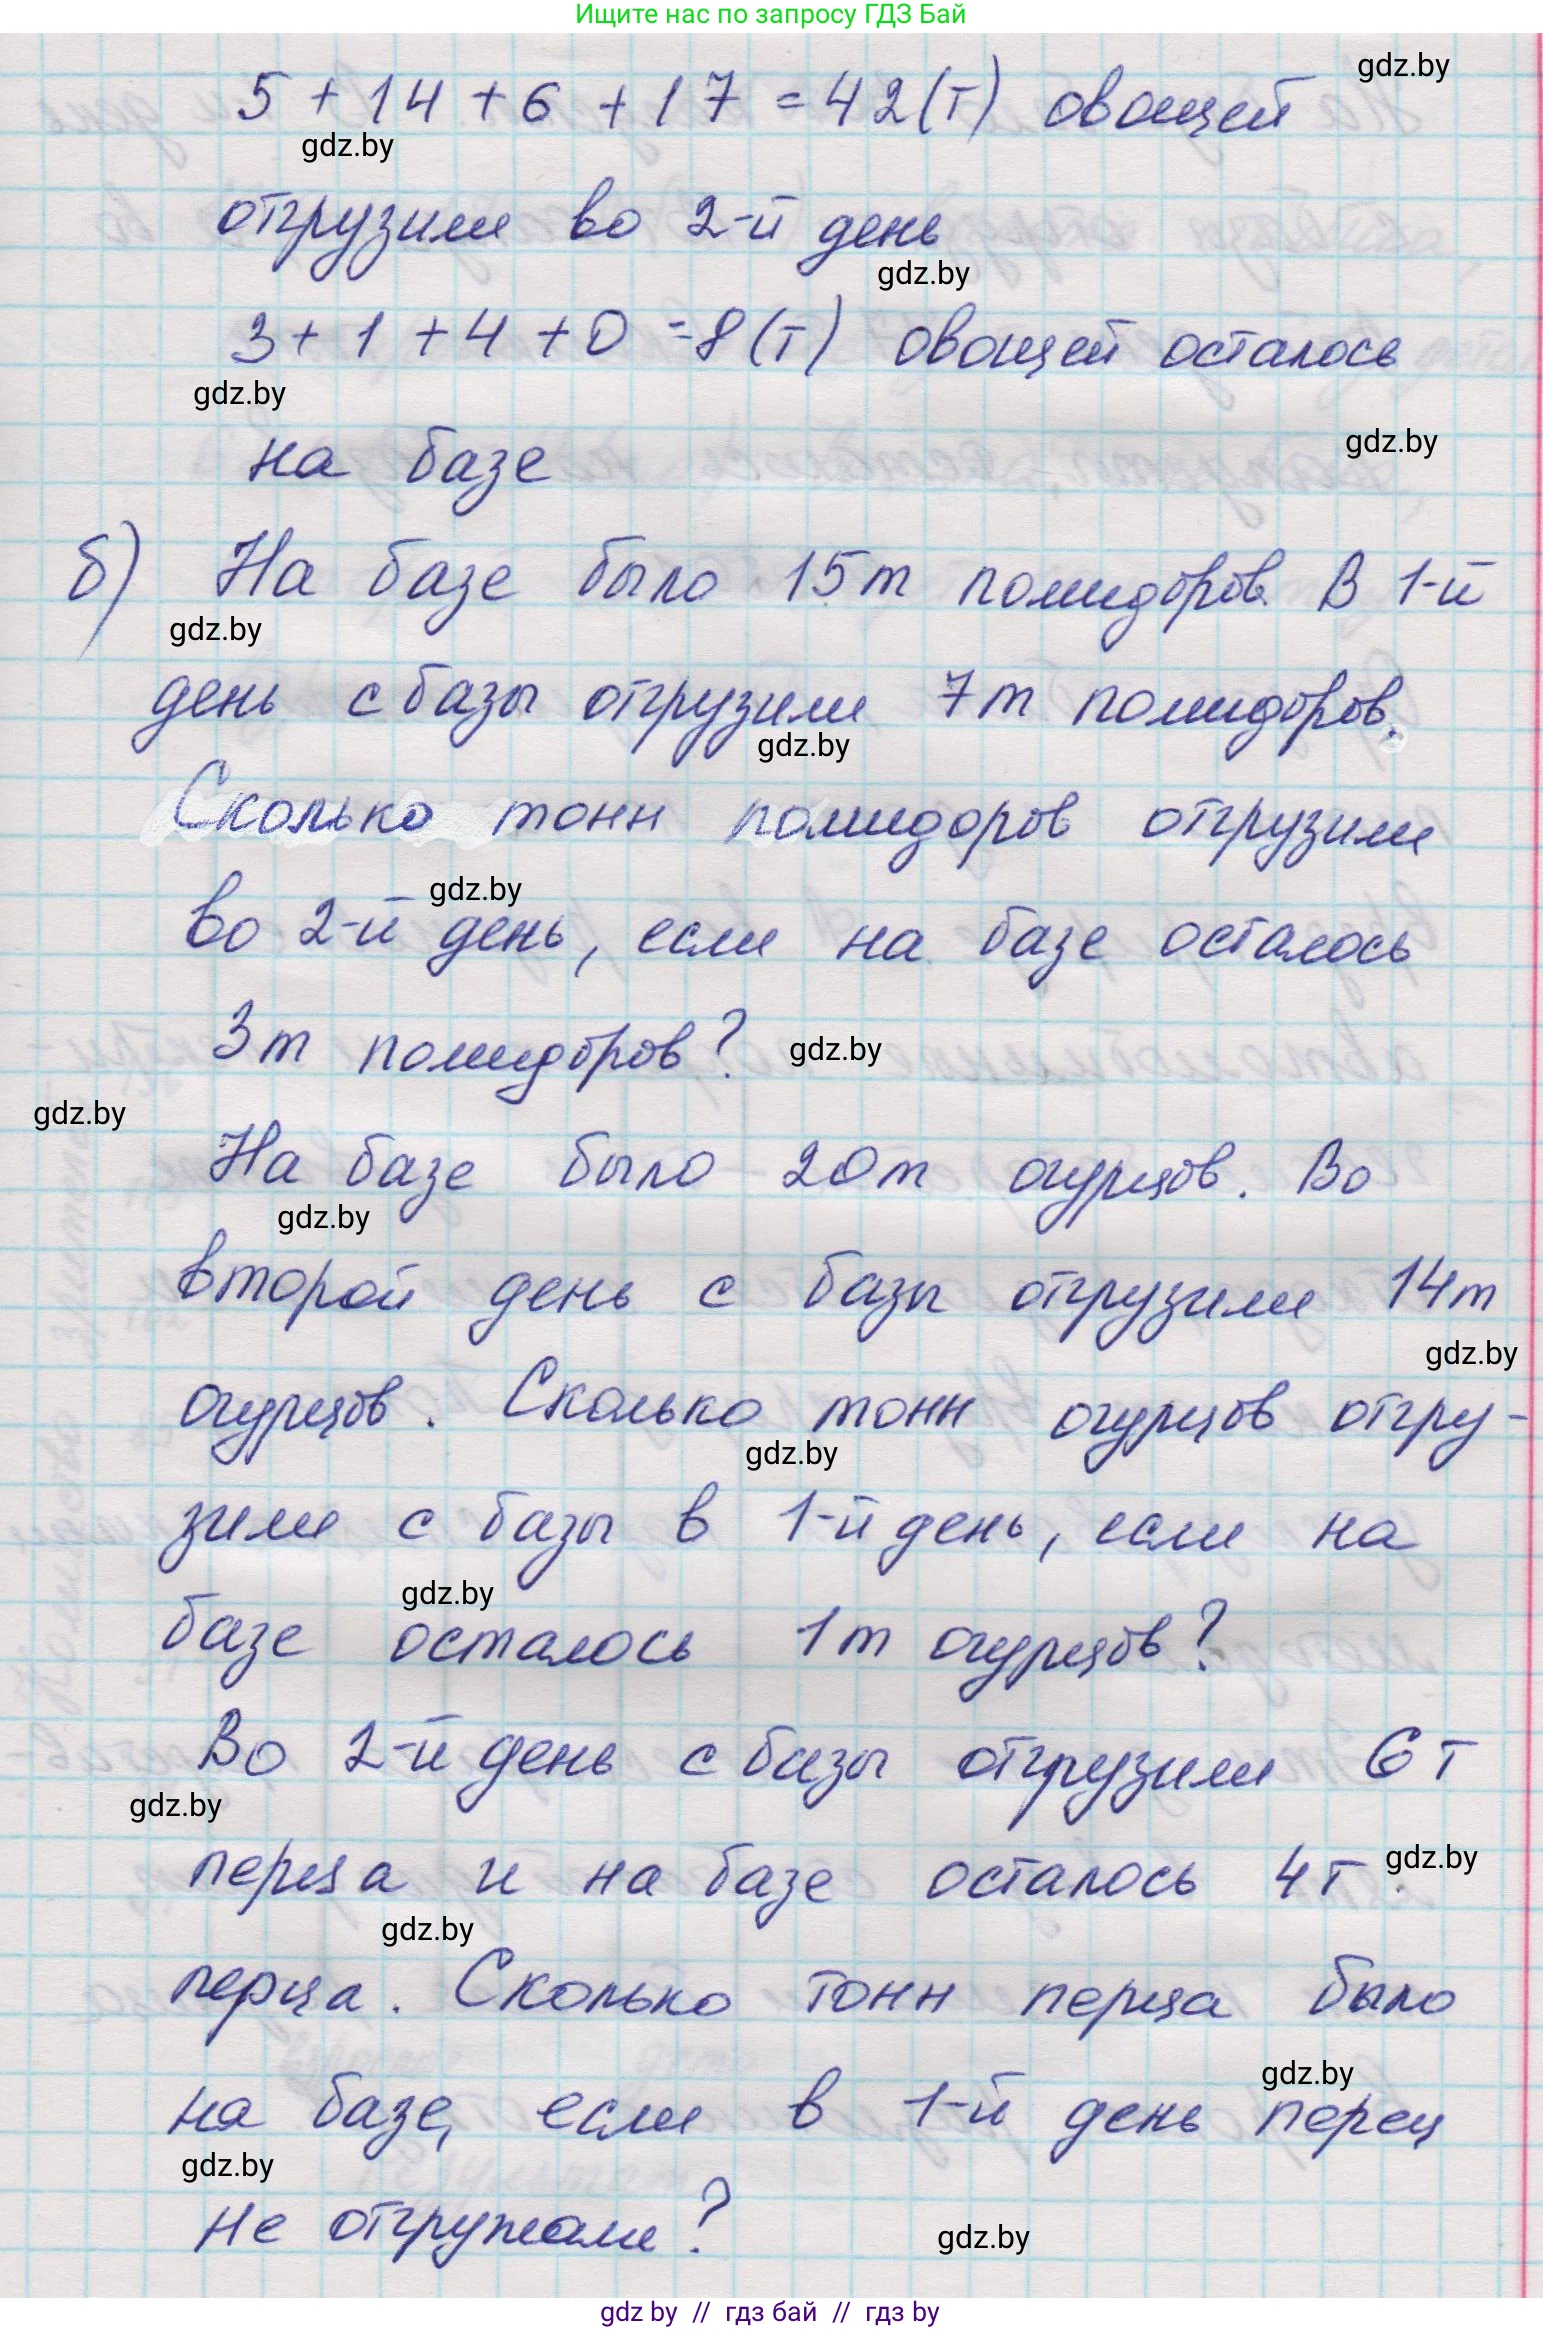 Ищите нас по запросу ГДЗ Бай
gdz.by
5 + 14 + 6 + 17 = 42(т) овощей
gdz.by
отгрузили во 2-й день
gdz.by
3 + 1 + 4 + 0 = 8(т) овощей осталось
gdz.by
gdz.by
на базе
б) На базе было 15т помидоров. В 1-й
gdz.by
день с базы отгрузили 7т помидоров.
gdz.by
Сколько тонн помидоров отгрузили
gdz.by
во 2-й день, если на базе осталось
3т помидоров?
gdz.by
gdz.by
На базе было 20т огурцов. Во
gdz.by
второй день с базы отгрузили 14т
gdz.by
огурцов. Сколько тонн огурцов отгру-
gdz.by
зили с базы в 1-й день, если на
gdz.by
базе осталось 1т огурцов?
Во 2-й день с базы отгрузили 6т
gdz.by
перца и на базе осталось 4т
gdz.by
gdz.by
перца. Сколько тонн перца было
gdz.by
на базе, если в 1-й день перец
gdz.by
не отгружали?
gdz.by
gdz by // гдз бай // гдз by